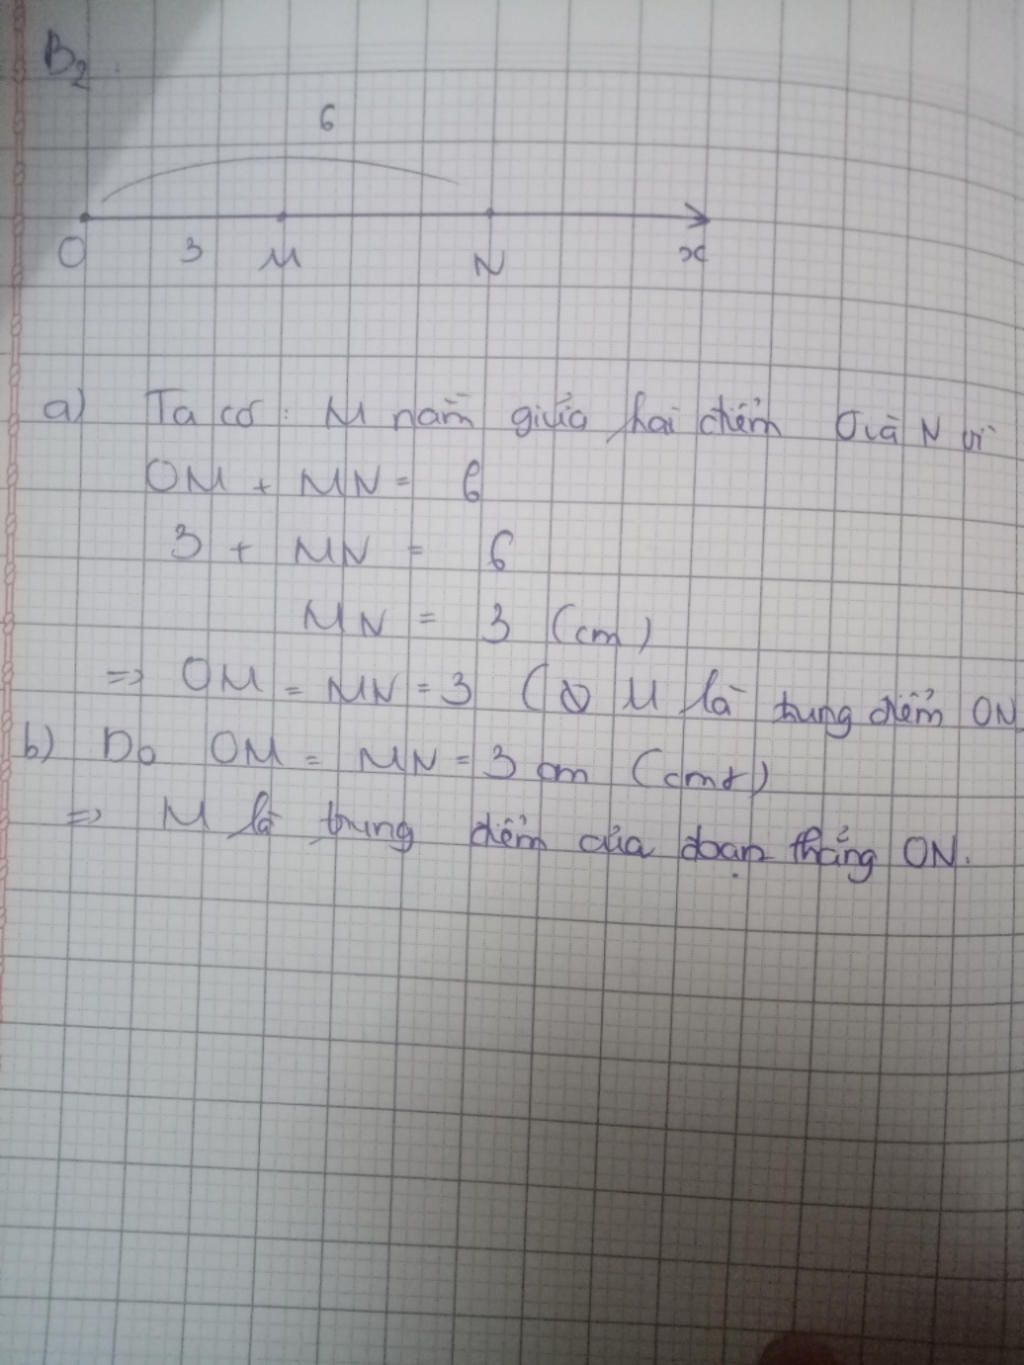 B2.
6
O 3 M N x
a) Ta có: M nằm giữa hai điểm O và N vì
OM + MN = 6
3 + MN = 6
MN = 3 (cm)
=> OM = MN = 3 ( M là trung điểm ON
b) Do OM = MN = 3 cm (cmt)
=> M là trung điểm của đoạn thẳng ON.